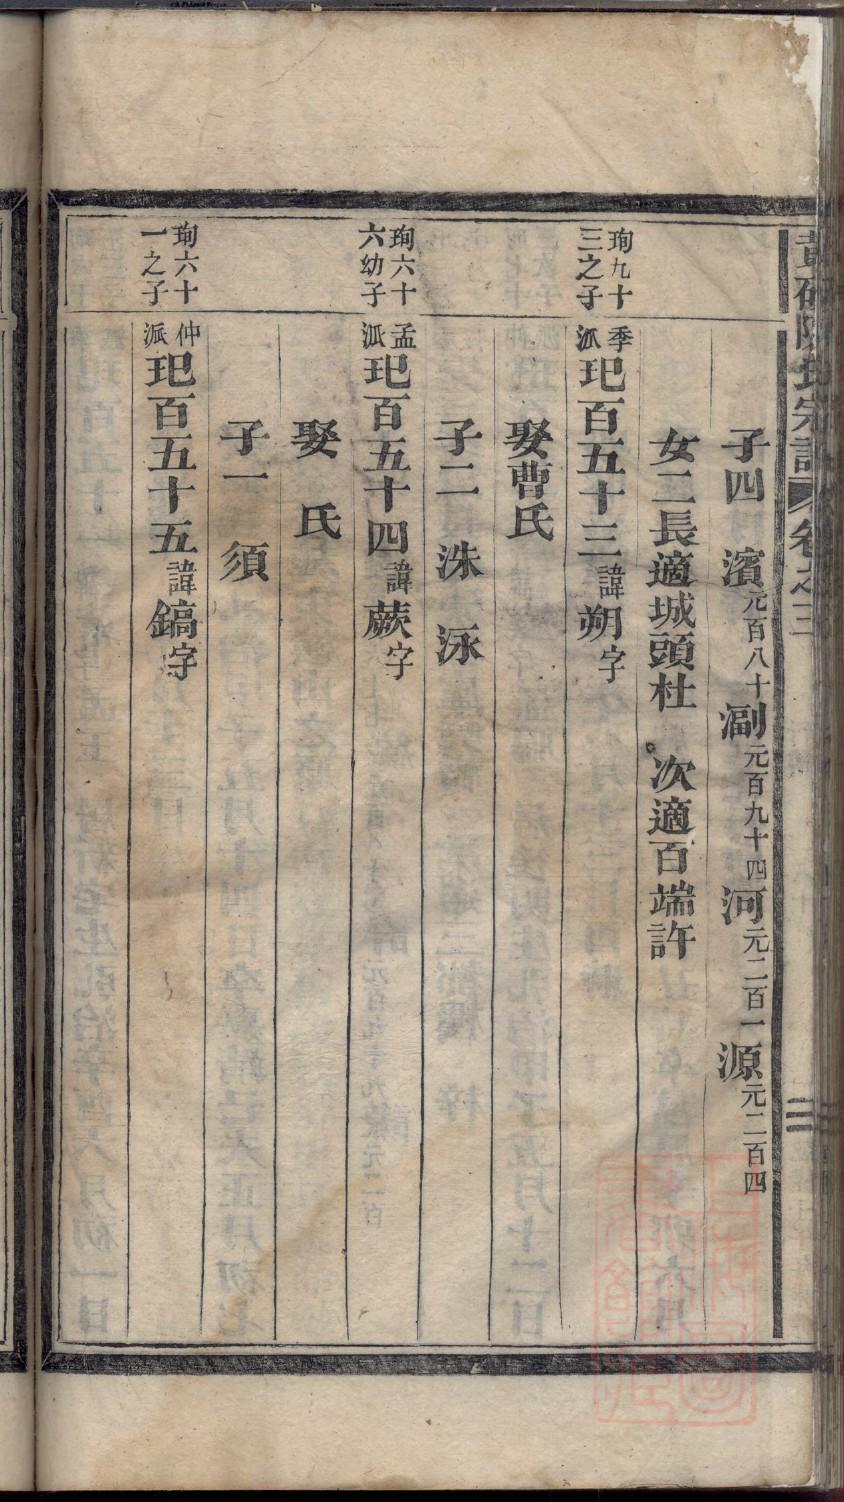 子四 濱元百八十 㵒元百九十四 河元二百一 源元二百四
女二長適城頭杜 次適百端許
珣九十三之子 季派玘百五十三諱朔字
娶曹氏
子二 洙 泳
珣六十六幼子 孟派玘百五十四諱蕨字
娶 氏
子一 須
珣六十一之子 仲派玘百五十五諱鎬字